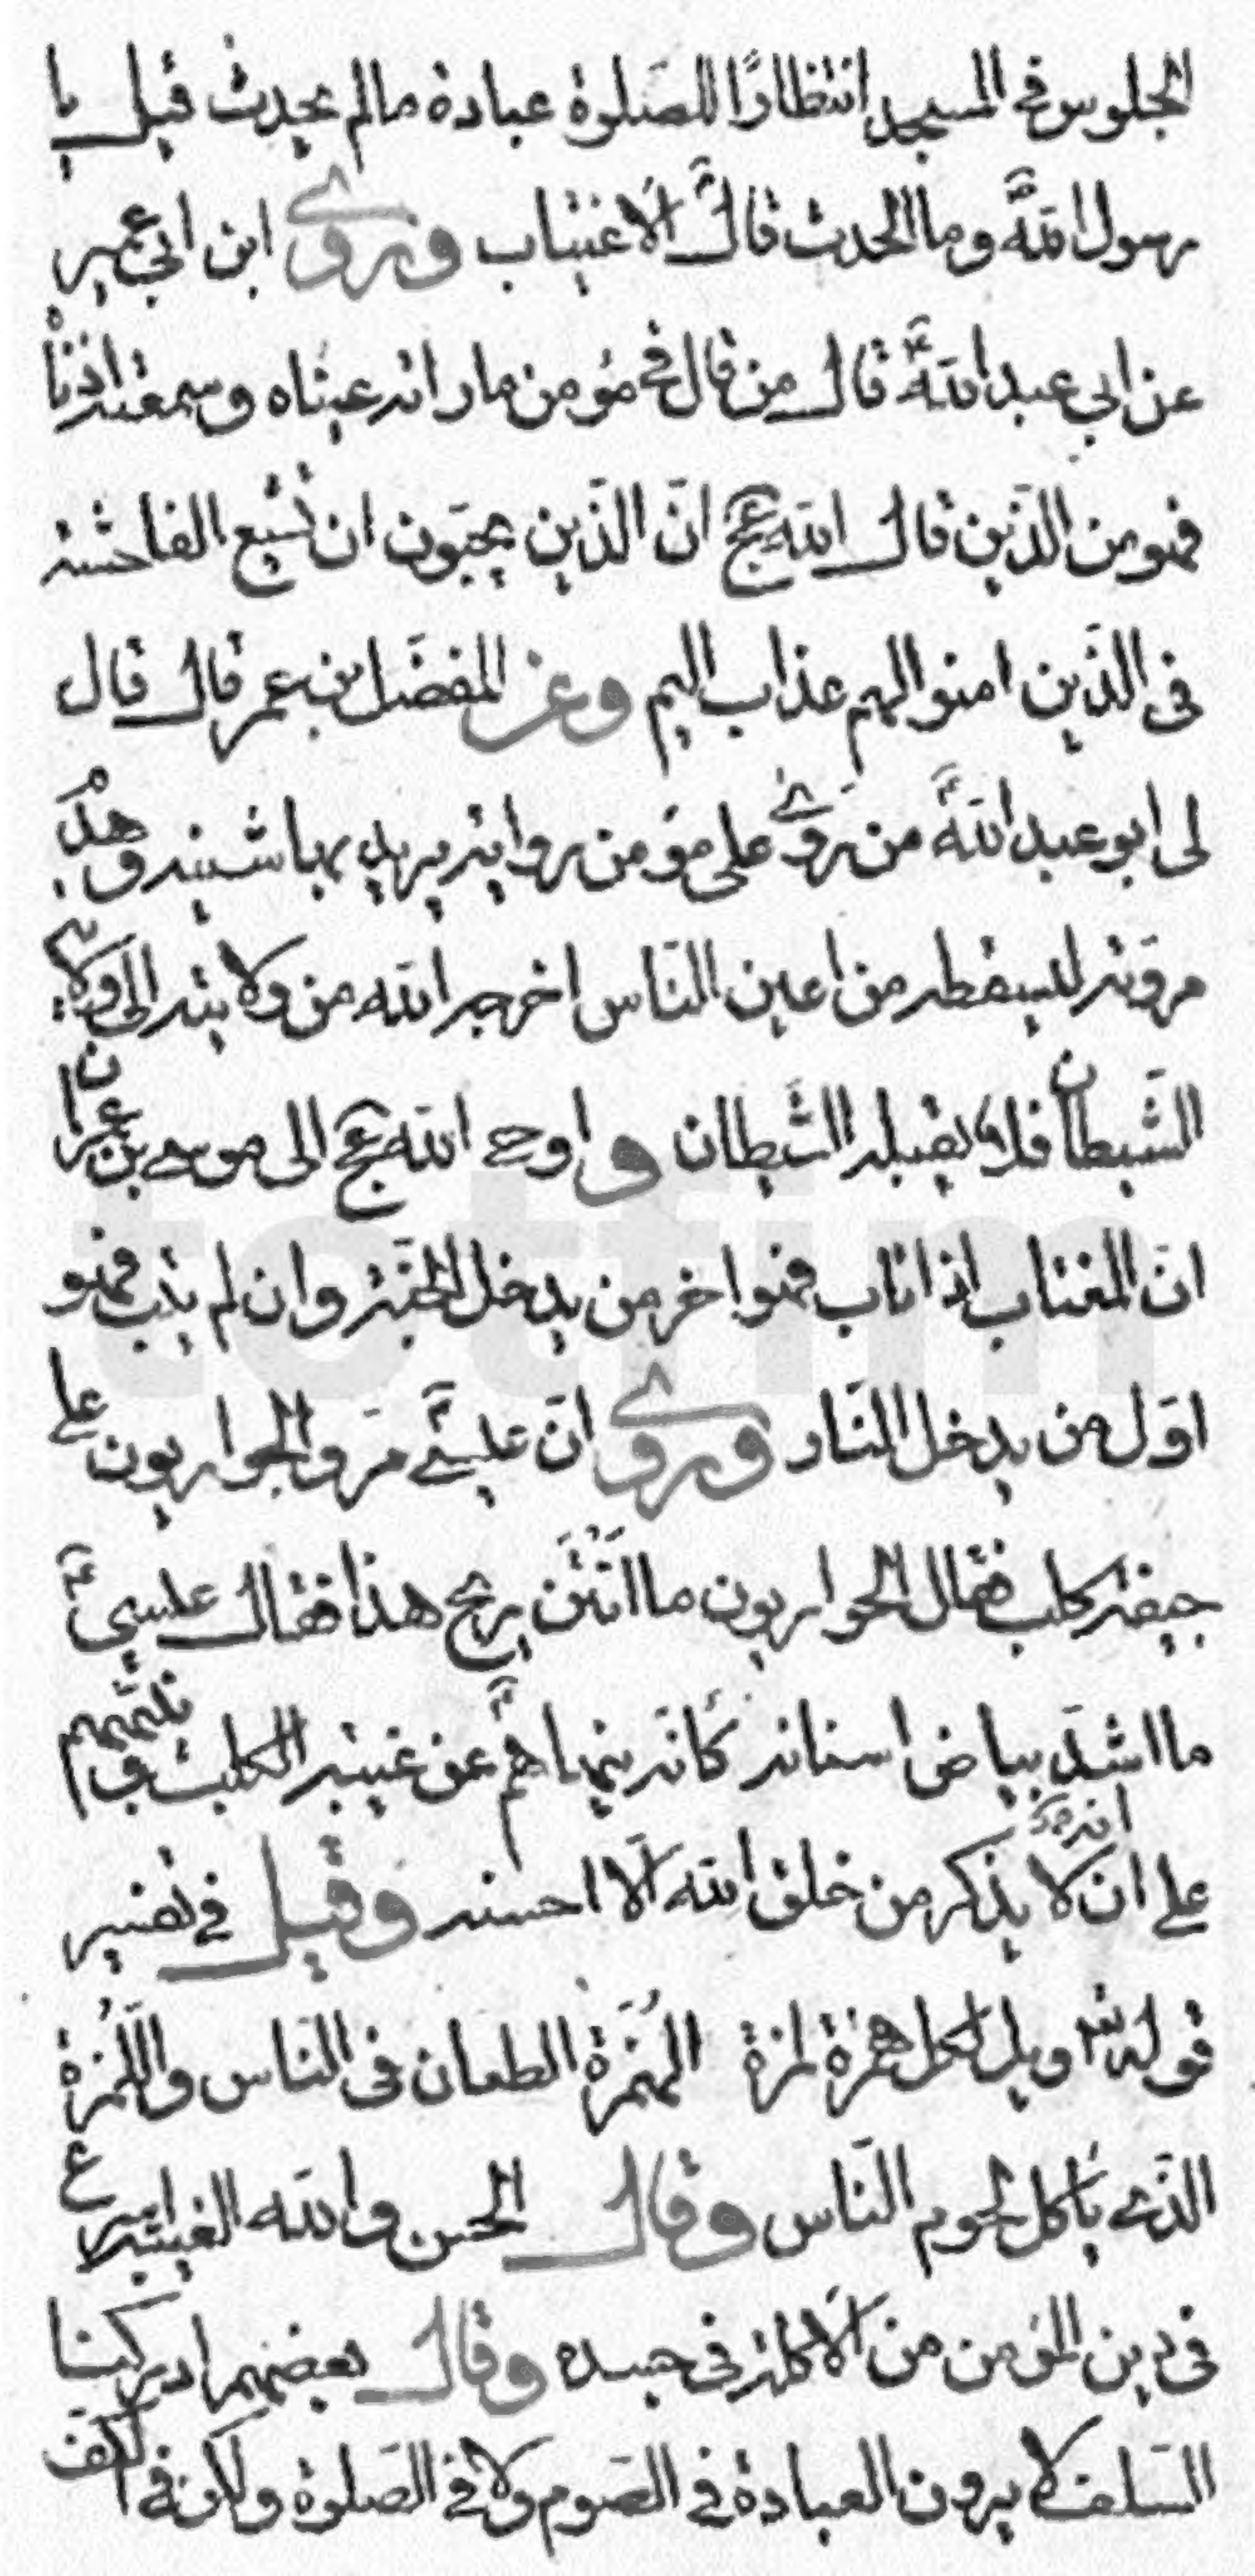 الجلوس في المسجد انتظارًا للصّلوة عبادة ما لم يحدث قيل يا
رسول اللهؐ وما الحدث قالؐ الاغتياب وروى ابن ابي عمير
عن ابي عبد اللهؑ قال من قال في مؤمن ما راته عيناه وسمعته اذناه
فهو من الذين قال الله عج انّ الذّين يحبّون ان تشيع الفاحشة
في الذّين امنوا لهم عذاب اليم وعن المفضّل بن عمر قال قال
لى ابو عبد اللهؑ من روى على مؤمن رواية يريد بها شينه وهدم
مروّته ليسقط من اعين النّاس اخرجه الله من ولايته الى ولاية
الشّيطان فلا يقبله الشّيطان واوحى الله عج الى موسى بن عمران
انّ المغتاب اذا تاب فهو اخر من يدخل الجنّة وان لم يتب فهو
اوّل من يدخل النّار وروى انّ عيسىؑ مرّ والحواريون على
جيفة كلب فقال الحواريون ما انتن ريح هذا فقال عيسىؑ
ما اشدّ بياض اسنانه كأنّه ينهاهمؑ عن غيبة الكلب وتنبّههم
على انه لا يذكر من خلق الله الّا احسنه وقيل في تفسير
قوله تعا ويل لكل همزة لمزة الهُمَزة الطعان في النّاس واللُّمزة
الذّى يأكل لحوم النّاس وقال الحسن والله الغيبة اسرع
في دين المؤمن من الاكلة في جسده وقال بعضهم ادركنا
السّلف لا يرون العبادة في الصّوم ولا في الصّلوة ولكن في الكفّ